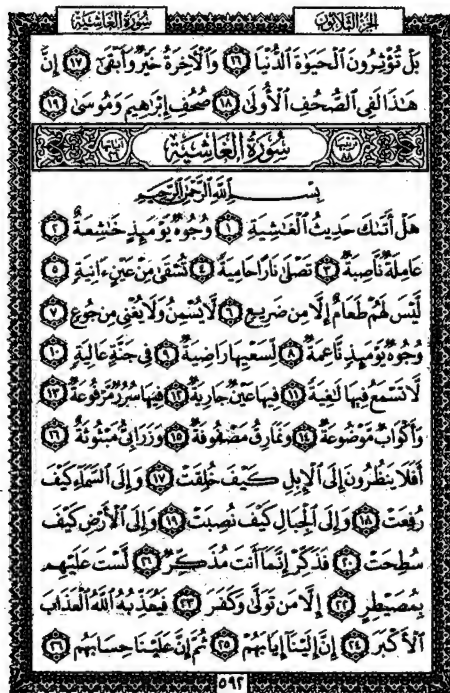 سُورَةُ الْغَاشِيَةِ الجُزْءُ الثَّلَاثُونَ
بَلْ تُؤْثِرُونَ ٱلْحَيَوٰةَ ٱلدُّنْيَا ١٦ وَٱلْءَاخِرَةُ خَيْرٌ وَأَبْقَىٰٓ ١٧ إِنَّ
هَـٰذَا لَفِى ٱلصُّحُفِ ٱلْأُولَىٰ ١٨ صُحُفِ إِبْرَٰهِيمَ وَمُوسَىٰ ١٩
سُورَةُ الْغَاشِيَةِ
بِسْمِ ٱللَّهِ ٱلرَّحْمَـٰنِ ٱلرَّحِيمِ
هَلْ أَتَىٰكَ حَدِيثُ ٱلْغَـٰشِيَةِ ١ وُجُوهٌ يَوْمَئِذٍ خَـٰشِعَةٌ ٢
عَامِلَةٌ نَّاصِبَةٌ ٣ تَصْلَىٰ نَارًا حَامِيَةً ٤ تُسْقَىٰ مِنْ عَيْنٍ ءَانِيَةٍ ٥
لَّيْسَ لَهُمْ طَعَامٌ إِلَّا مِن ضَرِيعٍ ٦ لَّا يُسْمِنُ وَلَا يُغْنِى مِن جُوعٍ ٧
وُجُوهٌ يَوْمَئِذٍ نَّاعِمَةٌ ٨ لِّسَعْيِهَا رَاضِيَةٌ ٩ فِى جَنَّةٍ عَالِيَةٍ ١٠
لَّا تَسْمَعُ فِيهَا لَـٰغِيَةً ١١ فِيهَا عَيْنٌ جَارِيَةٌ ١٢ فِيهَا سُرُرٌ مَّرْفُوعَةٌ ١٣
وَأَكْوَابٌ مَّوْضُوعَةٌ ١٤ وَنَمَارِقُ مَصْفُوفَةٌ ١٥ وَزَرَابِىُّ مَبْثُوثَةٌ ١٦
أَفَلَا يَنظُرُونَ إِلَى ٱلْإِبِلِ كَيْفَ خُلِقَتْ ١٧ وَإِلَى ٱلسَّمَآءِ كَيْفَ
رُفِعَتْ ١٨ وَإِلَى ٱلْجِبَالِ كَيْفَ نُصِبَتْ ١٩ وَإِلَى ٱلْأَرْضِ كَيْفَ
سُطِحَتْ ٢٠ فَذَكِّرْ إِنَّمَآ أَنتَ مُذَكِّرٌ ٢١ لَّسْتَ عَلَيْهِم
بِمُصَيْطِرٍ ٢٢ إِلَّا مَن تَوَلَّىٰ وَكَفَرَ ٢٣ فَيُعَذِّبُهُ ٱللَّهُ ٱلْعَذَابَ
ٱلْأَكْبَرَ ٢٤ إِنَّ إِلَيْنَآ إِيَابَهُمْ ٢٥ ثُمَّ إِنَّ عَلَيْنَا حِسَابَهُم ٢٦
٥٩٢